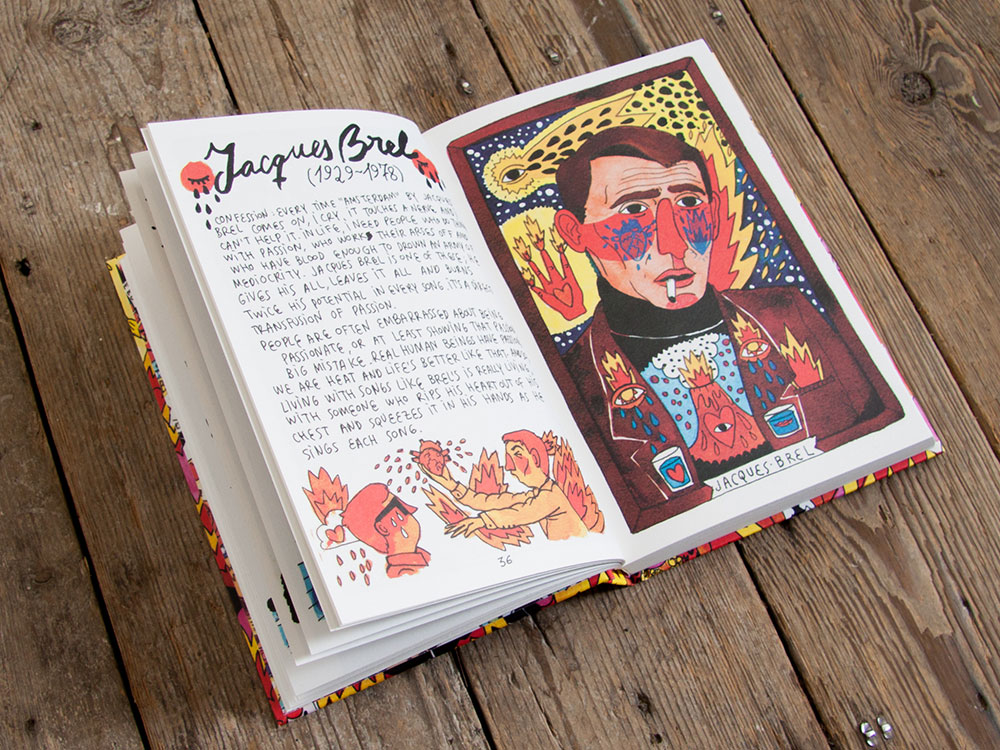 Jacques Brel
(1929~1978)
CONFESSION: EVERY TIME "AMSTERDAM" BY JACQUES
BREL COMES ON, I CRY. IT TOUCHES A NERVE AND I
CAN'T HELP IT. IN LIFE, I NEED PEOPLE WHO LIVE
WITH PASSION, WHO WORK THEIR ARSES OFF AND
WHO HAVE BLOOD ENOUGH TO DROWN AN ARMY OF
MEDIOCRITY. JACQUES BREL IS ONE OF THESE, HE
GIVES HIS ALL, LEAVES IT ALL AND BURNS
TWICE HIS POTENTIAL IN EVERY SONG. IT'S A DIRECT
TRANSFUSION OF PASSION.
PEOPLE ARE OFTEN EMBARRASSED ABOUT BEING
PASSIONATE, OR AT LEAST SHOWING THAT PASSION.
BIG MISTAKE. REAL HUMAN BEINGS HAVE PASSION,
WE ARE HEAT AND LIFE'S BETTER LIKE THAT. AND
LIVING WITH SONGS LIKE BREL'S IS REALLY LIVING
WITH SOMEONE WHO RIPS HIS HEART OUT OF HIS
CHEST AND SQUEEZES IT IN HIS HANDS AS HE
SINGS EACH SONG.
36
JACQUES·BREL